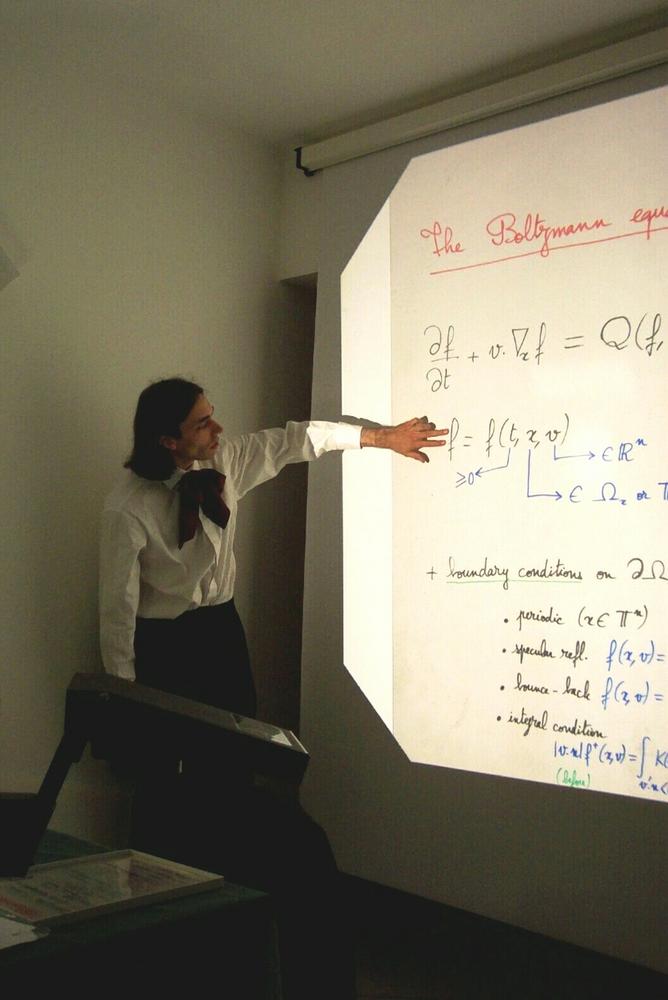 The Boltzmann equa
∂f/∂t + v·∇ₓf = Q(f,
f = f(t, x, v)
∈ ℝⁿ
≥0
∈ Ωₓ or T
+ boundary conditions on ∂Ω
• periodic (x ∈ 𝕋ⁿ)
• specular refl. f(x,v) =
• bounce-back f(x,v) =
• integral condition
|v·n|f⁺(x,v) = ∫ K(
v'·n<
(before)